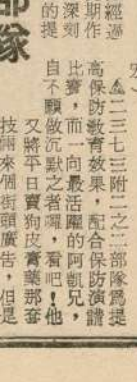 部隊
經過
期作
深刻
的提
▲二三七三附二之二部隊爲提
高保防教育效果，配合保防演講
比賽，而一向最活躍的阿凱兄，
自不願做沉默之者囉，看吧！他
又將平日賣狗皮膏藥那套
技兩來個街頭廣告，但是